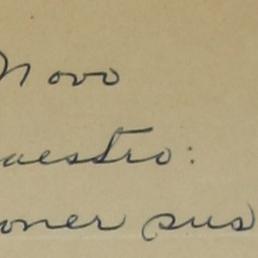 Novo
aestro:
oner sus